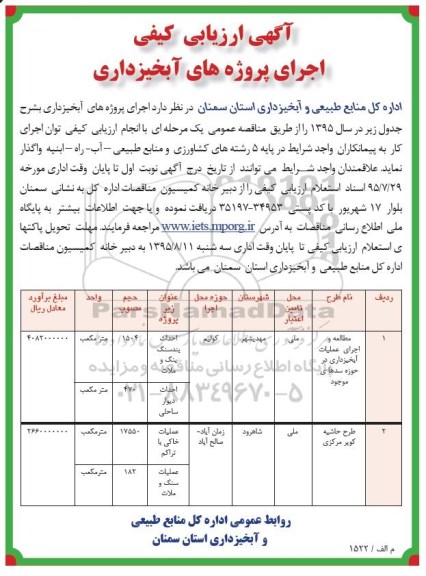 آگهی ارزیابی کیفی
اجرای پروژه های آبخیزداری
اداره کل منابع طبیعی و آبخیزداری استان سمنان در نظر دارد اجرای پروژه های آبخیزداری بشرح
جدول زیر در سال ۱۳۹۵ را از طریق مناقصه عمومی یک مرحله ای با انجام ارزیابی کیفی توان اجرای
کار به پیمانکاران واجد شرایط در پایه ۵ رشته های کشاورزی و منابع طبیعی – آب- راه –ابنیه واگذار
نماید. علاقمندان واجد شرایط می توانند از تاریخ درج آگهی نوبت اول تا پایان وقت اداری مورخه
۹۵/۷/۲۹ اسناد استعلام ارزیابی کیفی را از دبیر خانه کمیسیون مناقصات اداره کل به نشانی سمنان
بلوار ۱۷ شهریور با کد پستی ۳۴۹۵۳-۳۵۱۹۷ دریافت نموده و یا جهت اطلاعات بیشتر به پایگاه
ملی اطلاع رسانی مناقصات به آدرس www.iets.mporg.ir مراجعه فرمایند. مهلت تحویل پاکتها
ی استعلام ارزیابی کیفی تا پایان وقت اداری سه شنبه ۱۳۹۵/۸/۱۱ به دبیر خانه کمیسیون مناقصات
اداره کل منابع طبیعی و آبخیزداری استان سمنان می باشد.
ردیف نام طرح محل تامین اعتبار شهرستان حوزه محل اجرا عنوان زیر پروژه حجم مصوب واحد مبلغ برآورد معادل ریال
۱ مطالعه و اجرای عملیات آبخیزداری در حوزه سدهای موجود ملی مهدیشهر کولیم احداث بندسنگ سنگ و ملات ۱۵۰۴ متر مکعب ۴۰۸۲۰۰۰۰۰۰
احداث دیوار ساحلی ۴۷۰ مترمکعب
۲ طرح حاشیه کویر مرکزی ملی شاهرود زمان آباد- صالح آباد عملیات خاکی با تراکم ۱۷۵۵۰ مترمکعب ۲۶۶۰۰۰۰۰۰۰
عملیات سنگ و ملات ۱۸۲ مترمکعب
روابط عمومی اداره کل منابع طبیعی
و آبخیزداری استان سمنان
م الف / ۱۵۲۲
ParsNamadData
۰۲۱-۸۸۳۴۹۶۷۰-۵